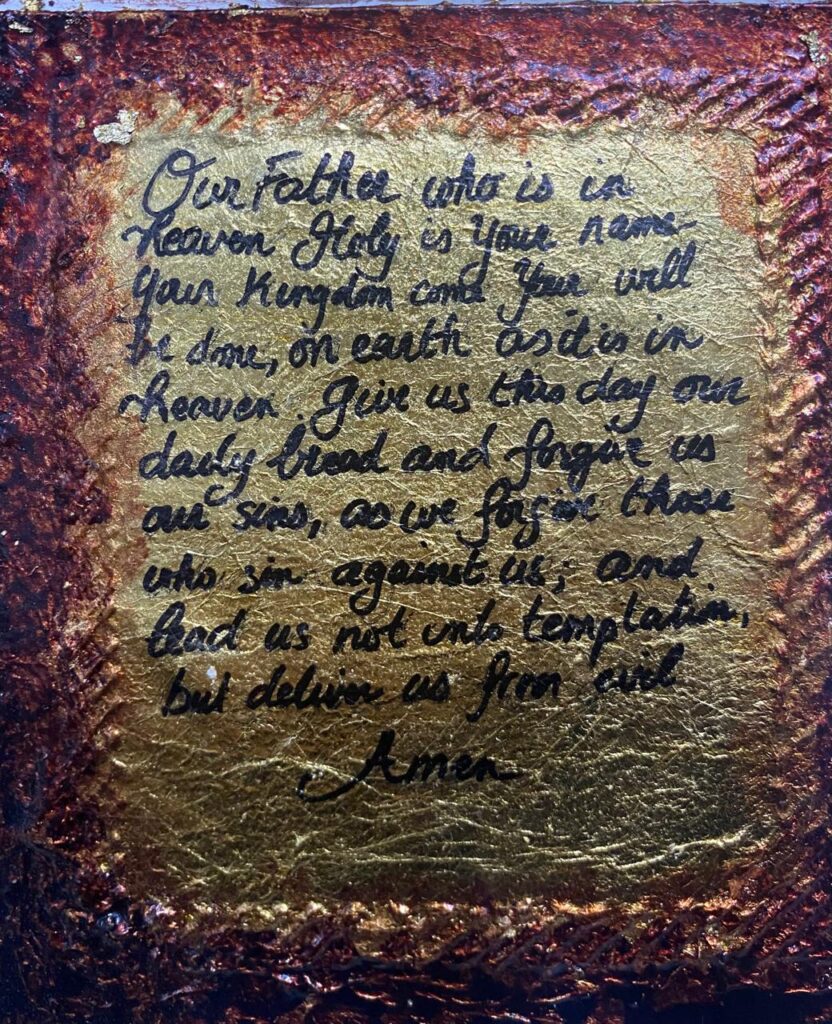 Our Father who is in
heaven Holy is Your name
Your Kingdom come Your will
be done, on earth as it is in
heaven. Give us this day our
daily bread and forgive us
our sins, as we forgive those
who sin against us; and
lead us not into temptation,
but deliver us from evil
Amen